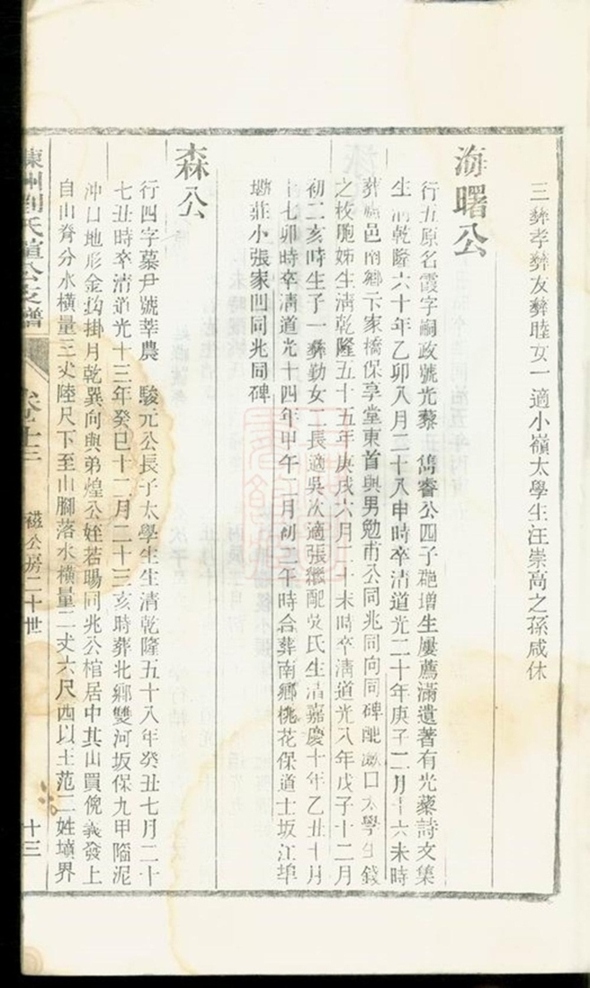 三彝孝彝友彝睦女一適小嶺太學生汪崇高之孫咸休
海曙公
行五原名霞字嗣政號光藜 雋睿公四子 增生屢薦滿遺著有光藜詩文集
生 清乾隆六十年乙卯八月二十八申時卒清道光二十年庚子二月十六未時
葬 邑南鄉卞家橋保享堂東首與男勉甫公同兆同向同碑配 口太學生錢
之枚胞姊生清乾隆五十五年庚戌六月二十未時卒清道光八年戊子十二月
初二亥時生子一彝勤女二長適吳次適張繼配 氏生清嘉慶十年乙丑十月
十七卯時卒清道光十四年甲午 月初二午時合葬南鄉桃花保道士坂江埠
壪莊小張家凹同兆同碑
森公
行四字 尹號莘農 駿元公長子太學生生清乾隆五十八年癸丑七月二十
七丑時卒清道光十三年癸巳十二月二十三亥時葬北鄉雙河坂保九甲 泥
沖口地形金鈎掛月乾巽向與弟煌公姪若暘同兆公棺居中其山買倪義發上
自山脊分水橫量三丈陸尺下至山腳落水橫量二丈六尺四以土范二姓墳界
劉氏 公支譜
磁公房二十世
十三